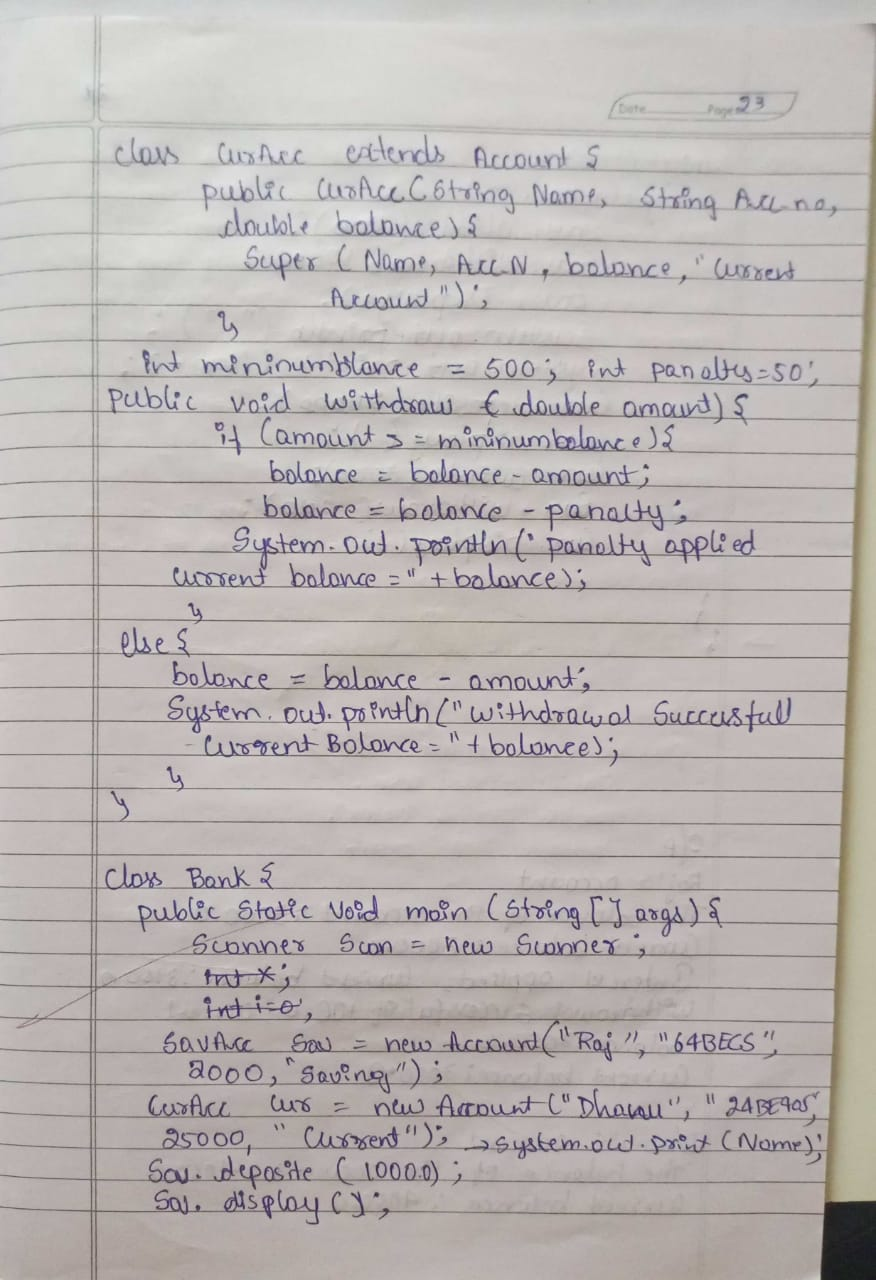 Date Page 23
class CurAcc extends Account {
public CurAcc (String Name, String Acc no,
double balance) {
Super (Name, Acc N, balance, "Current
Account");
}
int mininumblance = 500; int panalty=50;
public void withdraw ( double amount) {
if (amount >= mininumbalance) {
balance = balance - amount;
balance = balance - panalty;
System.out.println(" panalty applied
current balance =" + balance);
}
else {
balance = balance - amount;
System.out.println("withdrawal Successfull
Current Balance = " + balance);
}
}
class Bank {
public static void main (String [] args) {
Scanner Scan = new Scanner;
int x;
int i=0,
SavAcc Sav = new Account("Raj", "64BECS",
2000, "Saving");
CurAcc Cur = new Account ("Dhanu", "24BE905,
25000, "Current"); → System.out.print (Name);
Sav. deposite (1000.0);
Sav. display ();